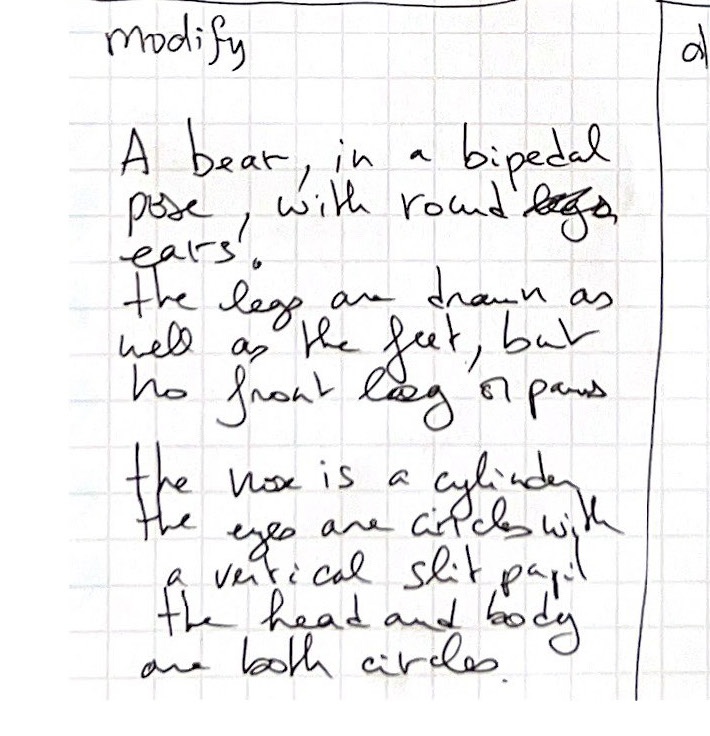 modify
A bear, in a bipedal
pose, with round legs
ears.
the legs are drawn as
well as the feet, but
no front leg or paws
the nose is a cylinder
the eyes are circles with
a vertical slit pupil
the head and body
are both circles.